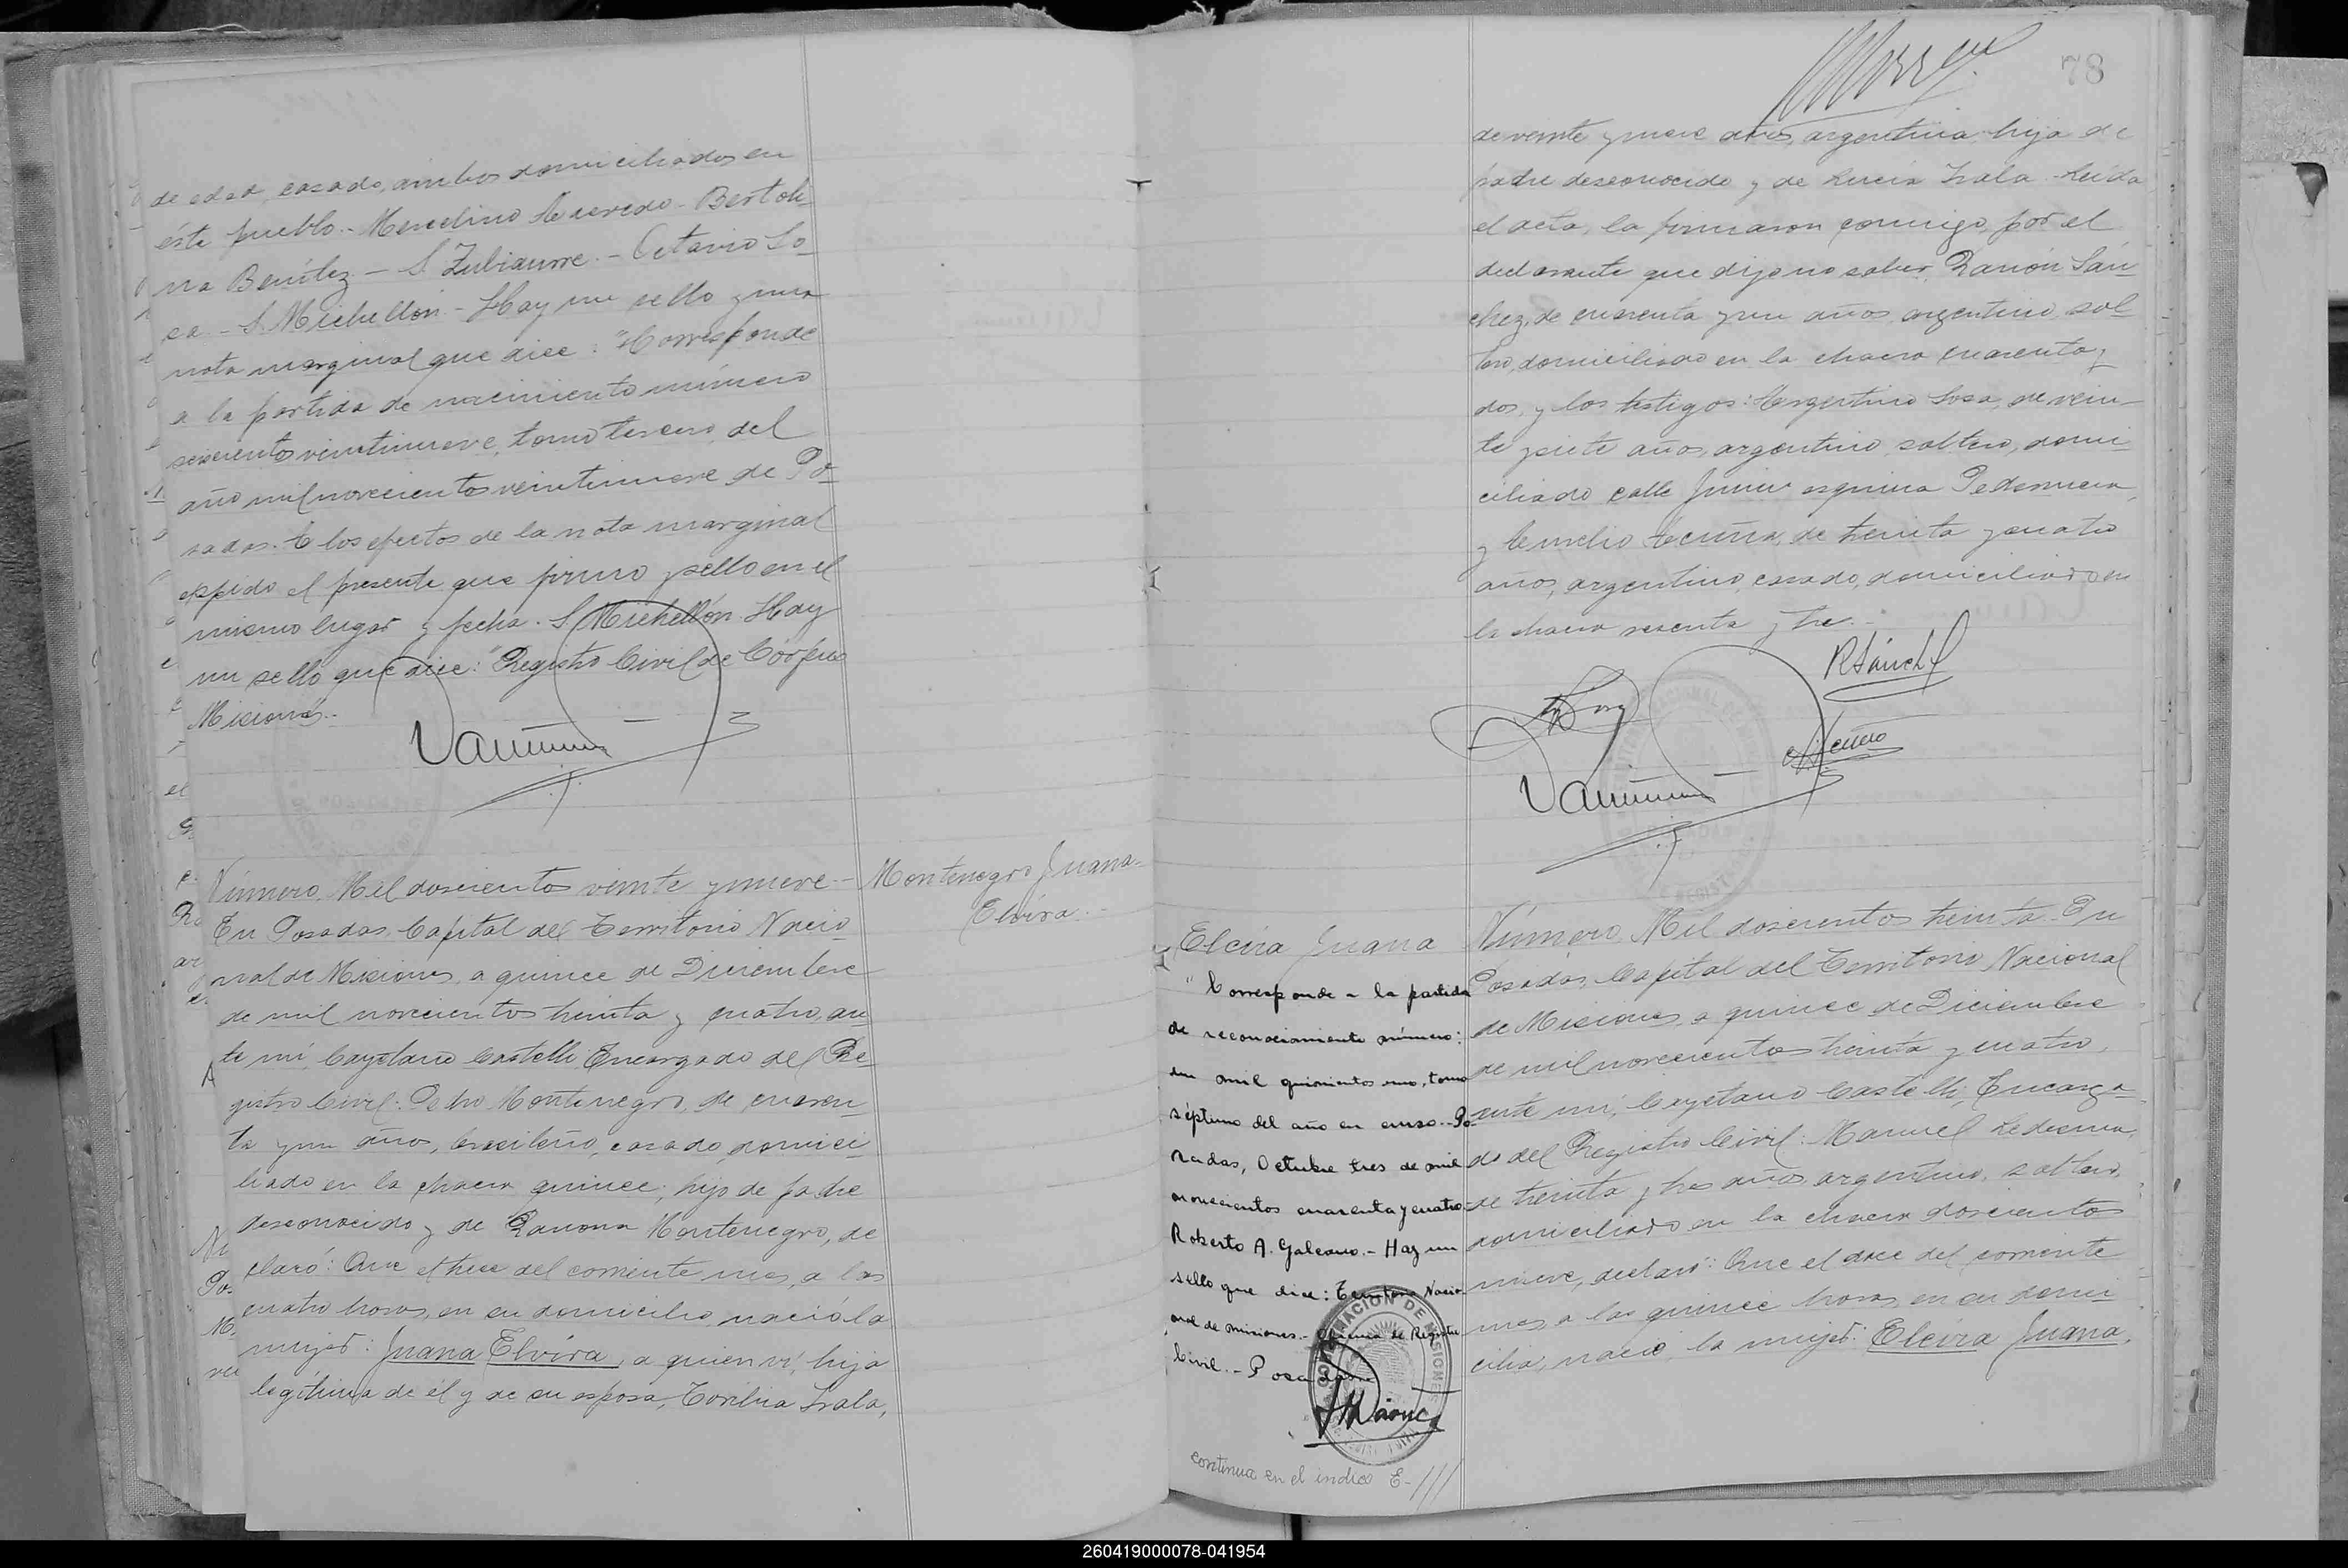 de edad, casado, ambos domiciliados en
éste pueblo.- Marcelino Acevedo - Bertoli-
na Benítez - S. Zubiaurre. - Octavio So
sa - S. Michellón - Hay un sello y una
nota marginal que dice: "Corresponde
a la partida de nacimiento número
seiscientos veintinueve, tomo tercero, del
año mil novecientos veintinueve de Po-
sadas. A los efectos de la nota marginal
expido el presente que firmo y sello en el
mismo lugar y fecha. S. Michellón. Hay
un sello que dice: "Registro Civil de Córpus
Misiones.-
Número Mil doscientos veinte y nueve -
En Posadas, Capital del Territorio Nacio
nal de Misiones, a quince de Diciembre
de mil novecientos treinta y cuatro, an
te mí, Cayetano Castelli, Encargado del Re-
gistro Civil: Pedro Montenegro, de cuaren-
ta y un años, brasileño, casado, domici-
liado en la chacra quince, hijo de padre
desconocido y de Ramona Montenegro, de
claró: Que el trece del corriente mes, a las
cuatro horas, en su domicilio, nació la
mujer: Juana Elvira, a quien ví, hija
legítima de él y de su esposa, Toribia Irala,
Montenegro Juana
Elvira.-
78
de veinte y nueve años, argentina, hija de
padre desconocido y de Lucía Irala. Leída
el acta, la firmaron conmigo, por el
declarante que dijo no saber, Ramón Sán
chez, de cuarenta y un años, argentino, sol
tero, domiciliado en la chacra cuarenta y
dos, y los testigos: Argentino Sosa, de vein-
te y siete años, argentino, soltero, domi-
ciliado calle Junín esquina Pedernera,
y Emelio Acuña, de treinta y cuatro
años, argentino, casado, domiciliado en
la chacra sesenta y tres.-
RSánchez
Elcira Juana
"Corresponde a la partida
de reconocimiento número:
un mil quinientos uno, tomo
séptimo del año en curso.- Po-
sadas, Octubre tres de mil
novecientos cuarenta y cuatro.-
Roberto A. Galeano.- Hay un
sello que dice: Territorio Nacio-
nal de Misiones.- Oficina de Registro
Civil.- Posadas
GOBERNACION DE MISIONES
continua en el indice E-///
Número Mil doscientos treinta - En
Posadas, Capital del Territorio Nacional
de Misiones, a quince de Diciembre
de mil novecientos treinta y cuatro,
ante mí, Cayetano Castelli, Encarga-
do del Registro Civil: Manuel Ledesma,
de treinta y tres años, argentino, soltero,
domiciliado en la chacra doscientos
nueve, declaró: Que el doce del corriente
mes, a las quince horas, en su domi
cilio, nació la mujer: Elcira Juana,
260419000078-041954